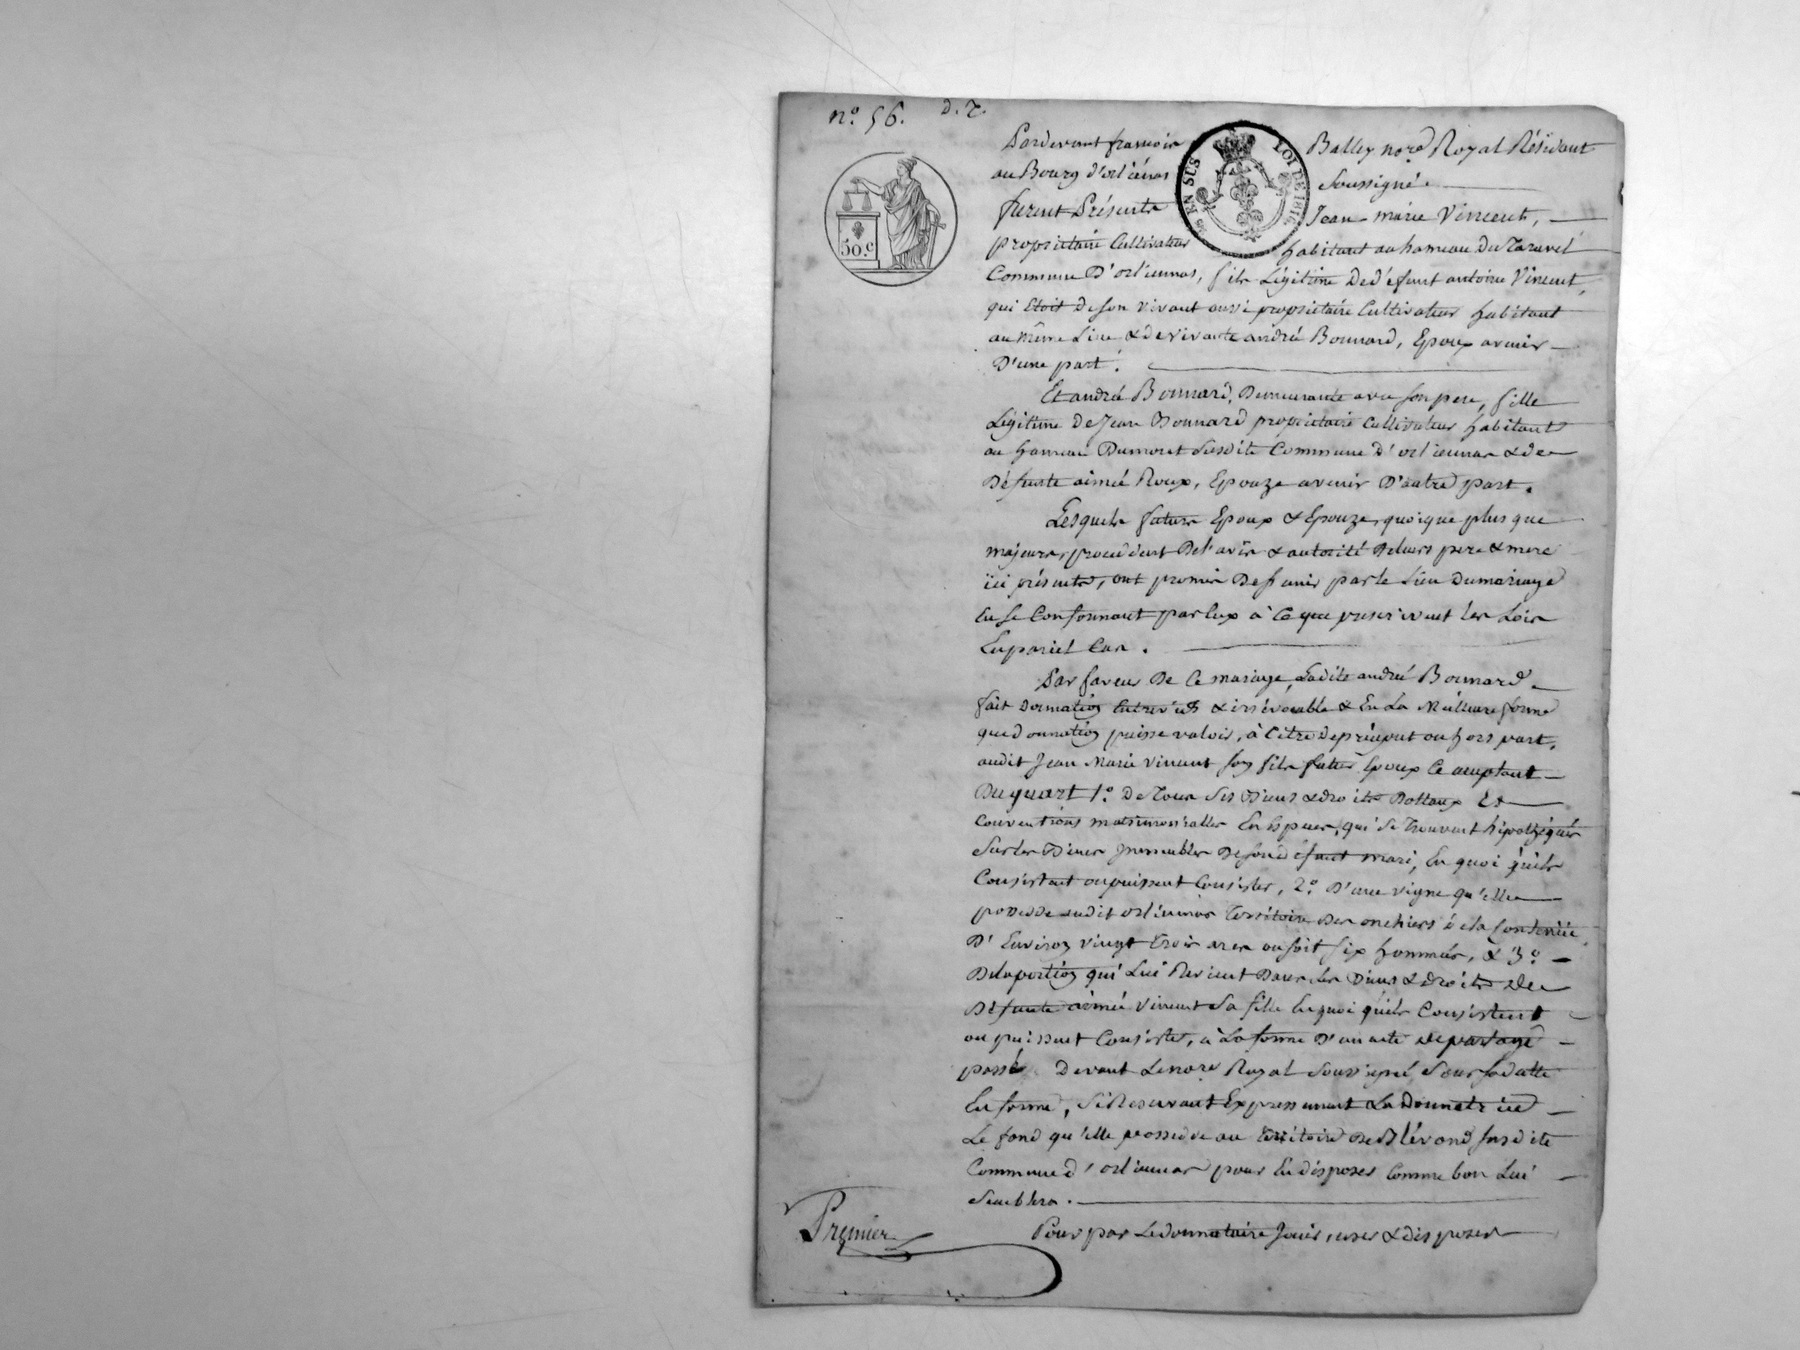 n.º 56. d. r.
Pardevant francois Balley no.re Royal Résidant
au Bourg d'orlienas soussigné.
EN SUS LOI DE 1816
50.c
furent Présents Jean-marie Vincent,
propriétaire Cultivateur habitant au hameau du Taravel
Commune D'orliennas, fils Légitime De défunt antoine Vincent,
qui Etoit De son vivant aussi propriétaire Cultivateur habitant
au même Lieu & de vivante andrée Bonnard, Epoux avenir
D'une part.
Et andrée Bonnard, Demeurante avec son pere, fille
Légitime De Jean Bonnard propriétaire Cultivateur habitant
au hameau Dumoret Susdite Commune d'orliennas & de
Défunte aimée Roux, Epouze avenir D'autre part.
Lesquels futurs Epoux & Epouze, quoique plus que
majeurs, procédent De l'avis & autorité De leurs pere & mere
ici présents, ont promis De s'unir par le Lien du mariage
En se Conformant par Eux à Ce que prescrivent les Loix
En pariel Cas.
Par faveur De Ce mariage, Ladite andrée Bonnard
fait donnation Entrevifs & irrévocable & En La Meilleure forme
que donnation puisse valoir, à titre de préciput ou hors part,
audit Jean Marie Vincent son fils futur Epoux Ce acceptant
Du quart 1.º De Tous Ses Biens & droits Dottaux Et
Conventions matrimonialles En Espèces, qui Se Trouvent hipothéqués
Sur les Biens Immeubles De son défunt mari, En quoi qu'ils
Consistent ou puissent Consister, 2.º D'une vigne qu'elle
possede audit orliennas Territoire Des onchiers de la Contenue
D'Environ vingt trois ares ou soit six hommées, & 3.º
De la portion qui Lui Revient Dans les Biens & droits de
Défunte aimée Vincent Sa fille En quoi qu'ils Consistent
ou puissent Consister, à La forme D'un acte de partage
passé Devant Le no.re Royal Soussigné Sous Sa datte
En forme, Se Reservant Expressement La Donnatrice
Le fond qu'elle possede au territoire De susdite
Commune d'orliennas pour En disposer Comme bon Lui
Semblera.
Premier
Pour par Le donnataire Jouir, user & disposer